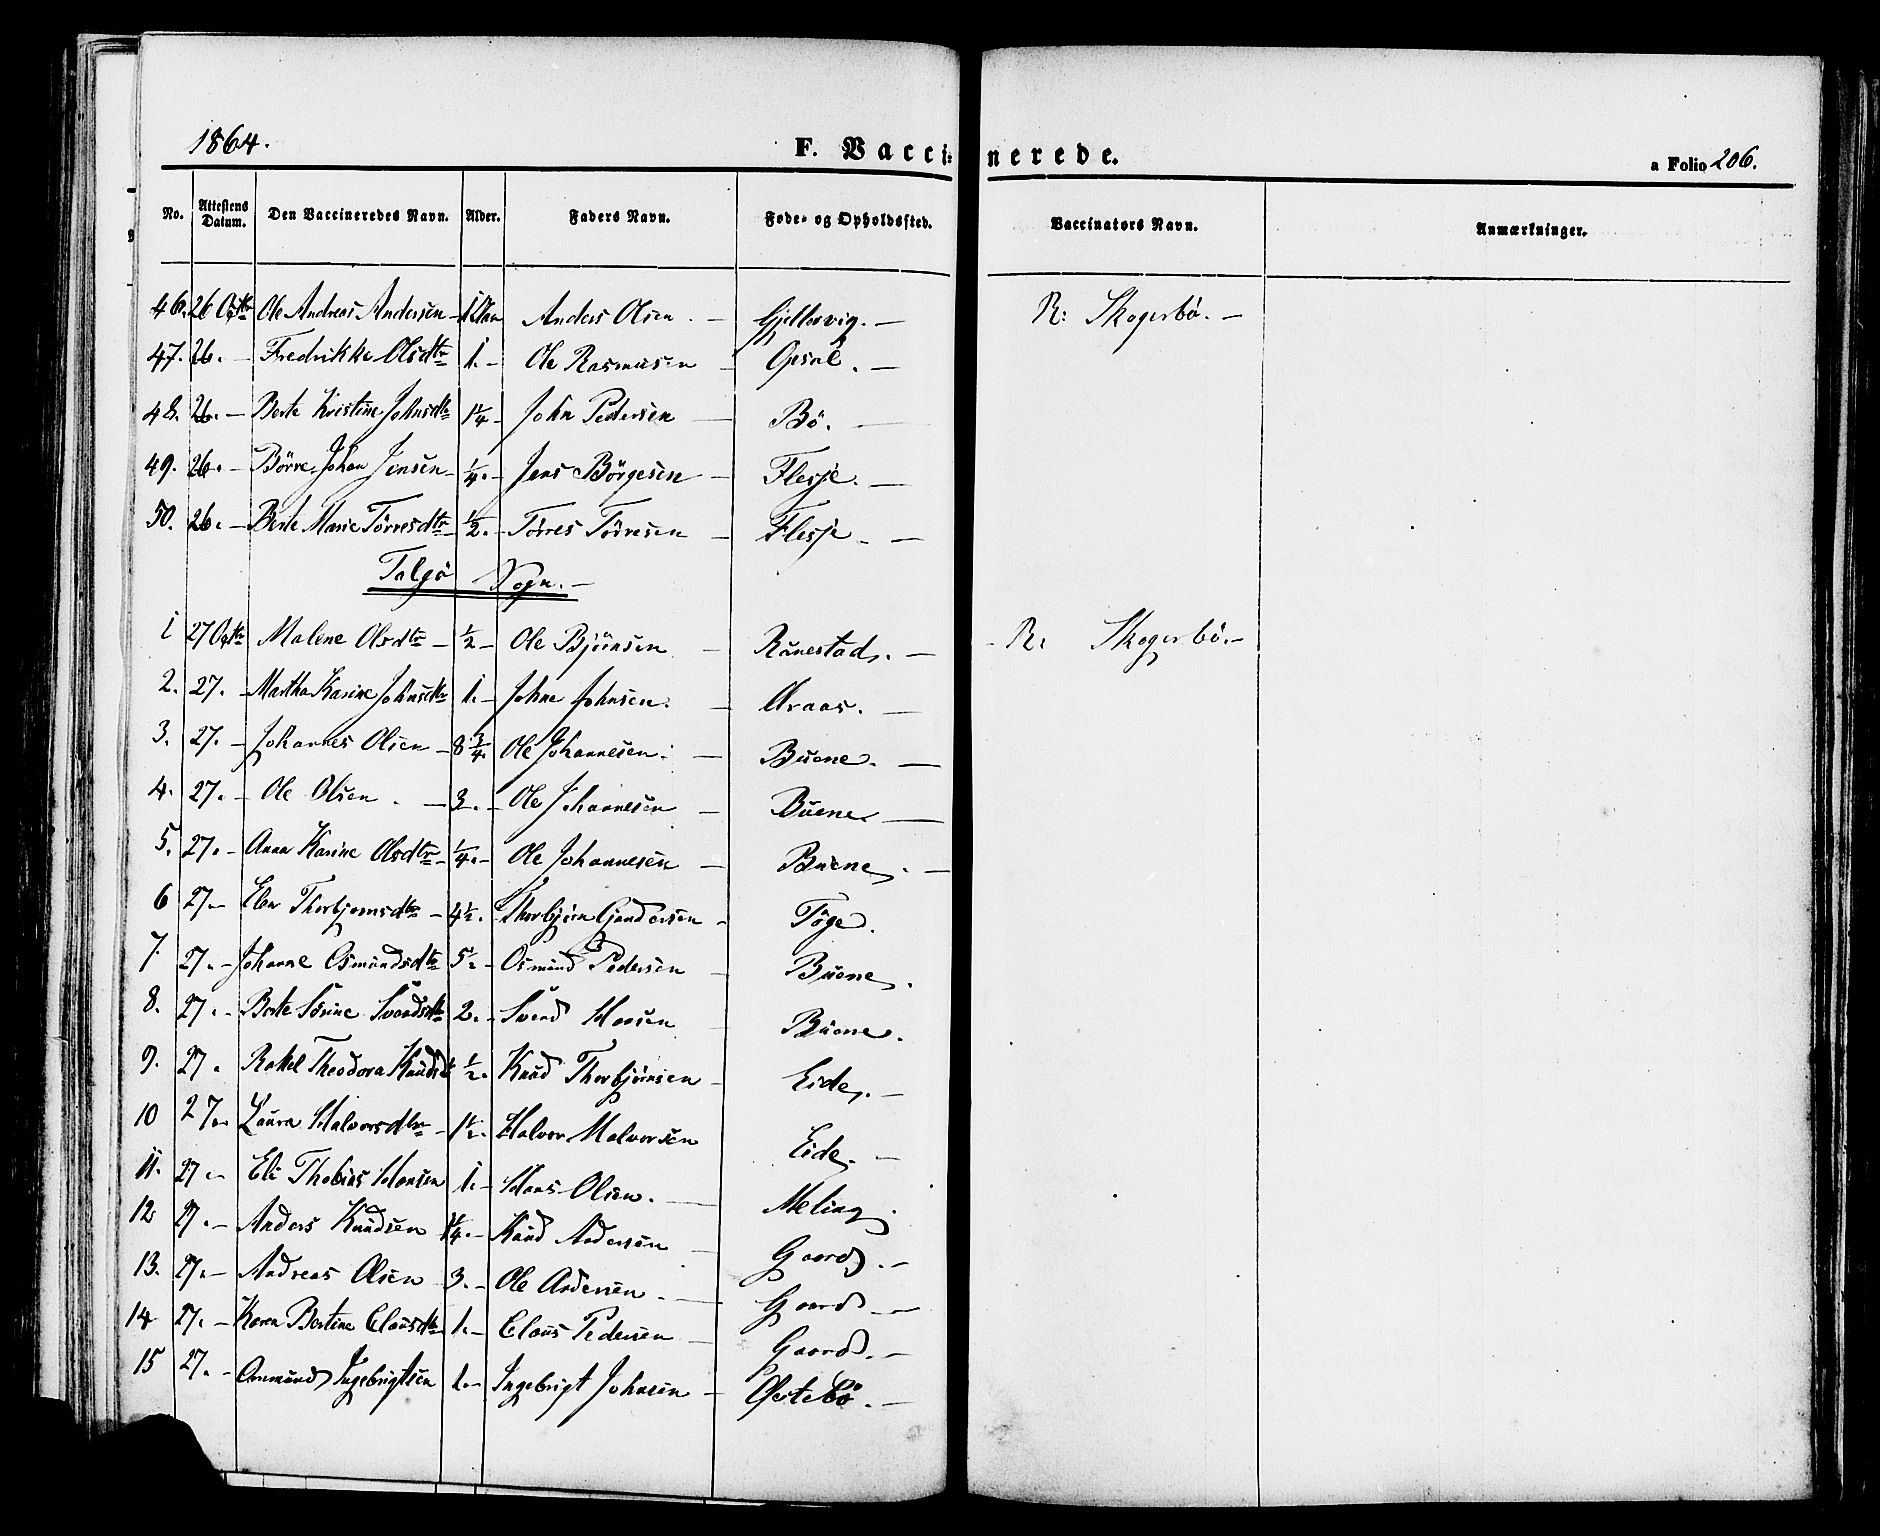 1864.
F. Vaccinerede.
a Folio 206.
No. Attestens Datum. Den Vaccineredes Navn. Alder. Faders Navn. Føde- og Opholdssted. Vaccinators Navn. Anmærkninger.
46. 26 Ole Andreas Andersen Anders Olsen. — Gjellervig. — R: Skogerbö. —
47. 26. — Fredrikke Olsdtr 1. — Ole Rasmusen — Opsal. —
48. 26. — Berte Kristine Johnsdtr 1¼ — John Pedersen — Bö. —
49. 26. — Börre Johan Jensen — ¼. — Jens Börgesen — Flesje. —
50. 26. — Berte Marie Törresdtr ½. — Törres Törresen — Flesje. —
Talgö Sogn. —
1 27 Malene Olsdtr — ½ — Ole Bjömsen — Rånestad. — R. Skogerbö. —
2. 27. — Martha Karine Johnsdtr 1. — Johne Johnsen. — Araas. —
3. 27. — Johannes Olsen — 8¾. Ole Johannesen. — Buene. —
4. 27. — Ole Olsen. — 3. — Ole Johannesen — Buene —
5. 27. — Anna Karine Olsdtr — ¼. — Ole Johannesen — Buene. —
6 27. — Elen Thorbjörnsdtr — 4½. Thorbjörn Gundersen — Töge.
7. 27. — Johanne Osmundsdtr 5½ — Osmund Pedersen — Buene.
8. 27. — Berte Serine Svendsdtr 2. — Svend Hansen — Buene.
9. 27. Rakel Theodora Knudsd ½. Knud Thorbjörnsen — Eide. —
10 27. — Laura Halvorsdtr — 1½. Halvor Halvorsen Eide. —
11. 27. — Eli Thobias Hansen 1. — Hans Olsen. — Meling.
12 27. — Anders Knudsen ¼. — Knud Andersen — Gaard. —
13. 27. — Andreas Olsen 3. — Ole Andersen. — Gaard. —
14 27. — Karen Bertine Clausdtr 1. — Claus Pedersen — Gaard. —
15 27. — Osmund Ingebrigtsen 1. — Ingebrigt Johnsen — Östebö. —